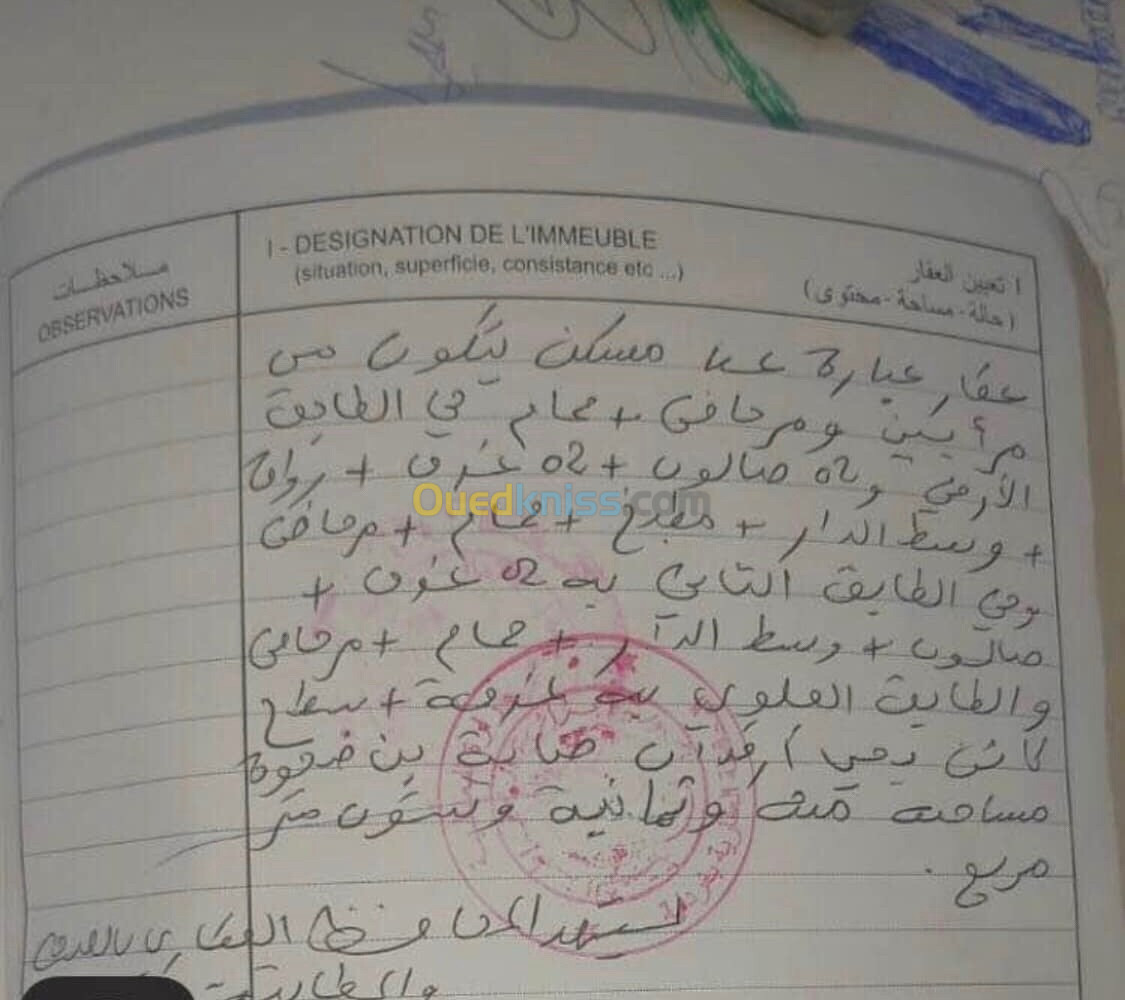 ملاحظات
OBSERVATIONS
I - DESIGNATION DE L'IMMEUBLE
(situation, superficie, consistance etc ...)
I تعيين العقار
(حالة - مساحة - محتوى)
عقار عبارة عن مسكن يتكون من
مرأبين ومرحاض + حمام في الطابق
الأرضي و 02 صالون + 02 غرف + رواق
+ وسط الدار + مطبخ + حمام + مرحاض
وفي الطابق الثاني به 02 غرف +
صالون + وسط الدار + حمام + مرحاض
والطابق العلوي به غرفة + سطح
كائن بحي
مساحته مئة وثمانية وستون متر
مربع .
المحافظ العقاري
Ouedkniss.com